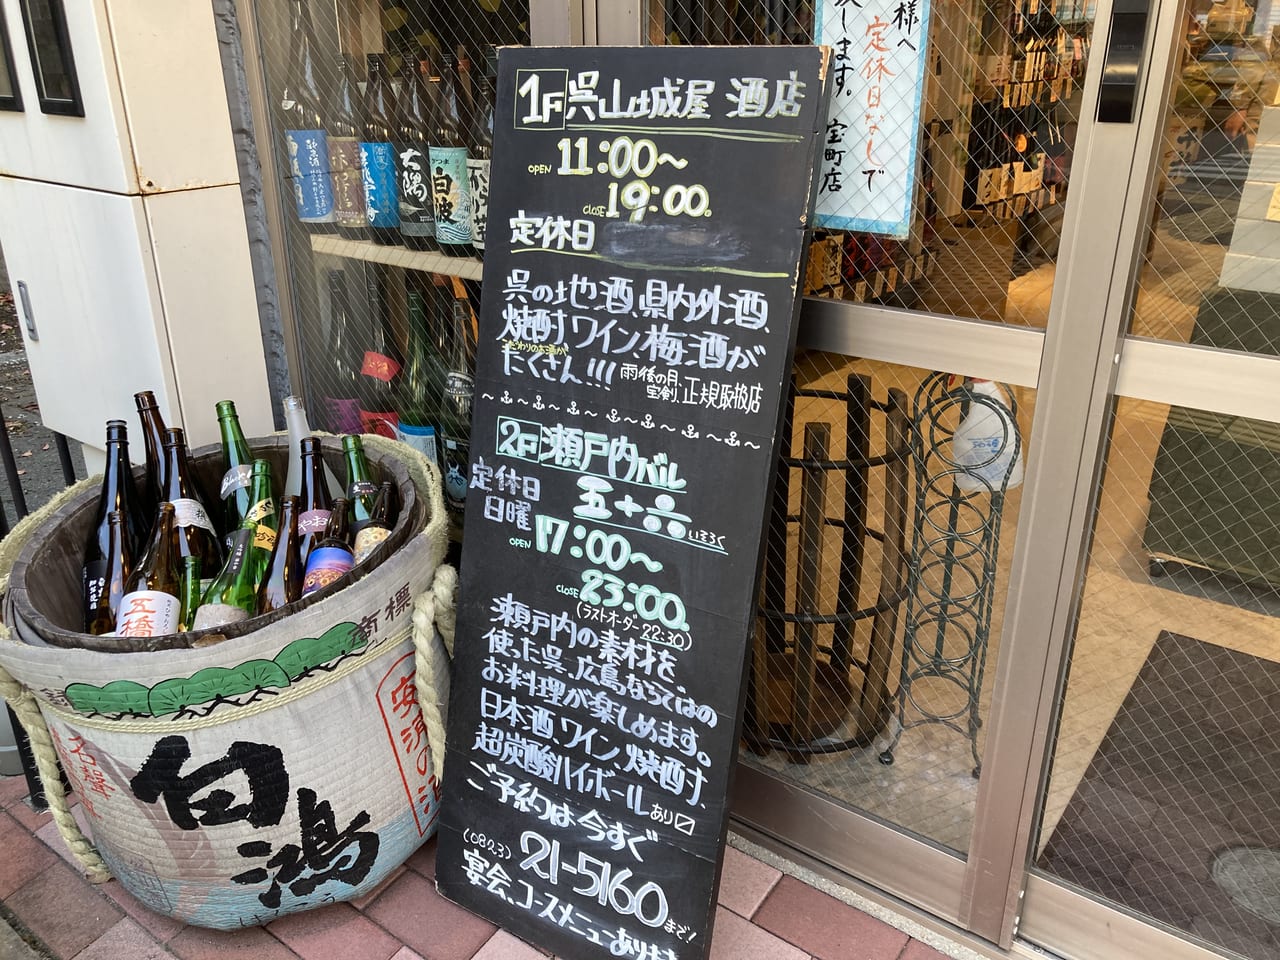 1F 呉 山城屋 酒店
OPEN 11:00〜
CLOSE 19:00。
定休日
呉の地酒、県内外酒、
焼酎、ワイン、梅酒が
こだわりのお酒が
たくさん!!!
雨後の月、
宝剣、正規取扱店
2F 瀬戸内バル
五十六
いそろく
定休日
日曜
OPEN 17:00〜
CLOSE 23:00。
(ラストオーダー22:30)
瀬戸内の素材を
使った呉、広島ならではの
お料理が楽しめます。
日本酒、ワイン、焼酎、
超炭酸ハイボールあり
ご予約は今すぐ
(0823) 21-5160まで!
宴会、コースメニューあります
様へ
定休日なしで
します。
宝町店
大隅
さつま
白波
五橋
商標
安浦の酒
白鴻
はくこう